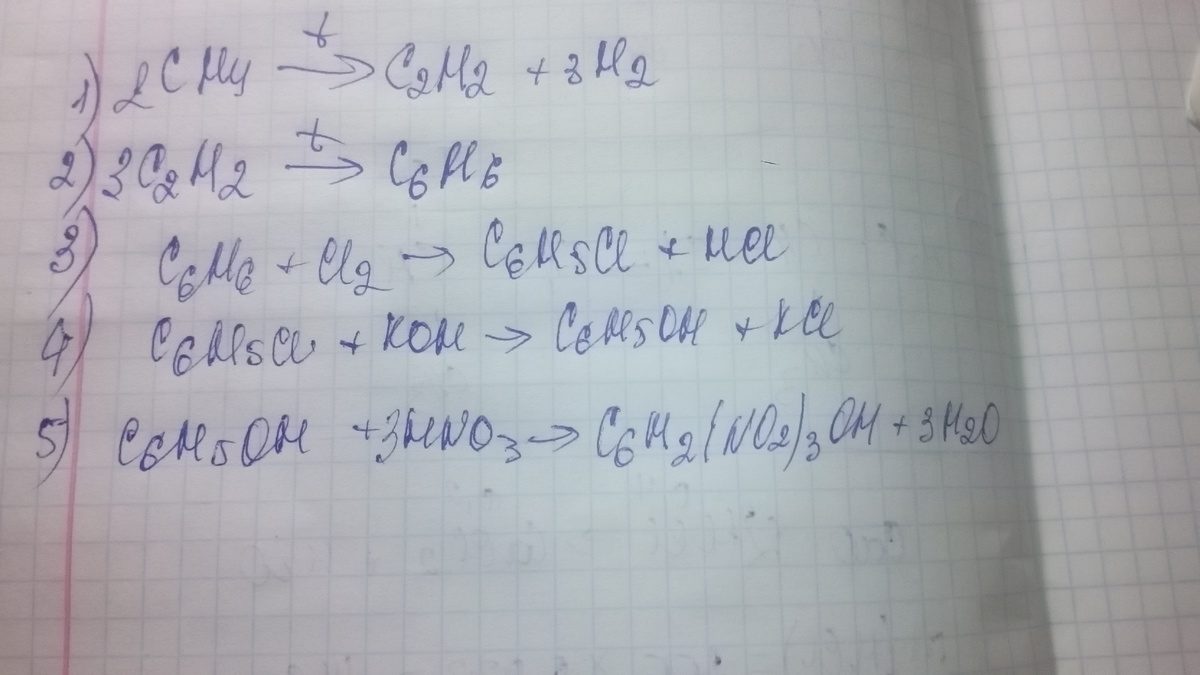 1) 2CH4 t→ C2H2 + 3H2
2) 3C2H2 t→ C6H6
3) C6H6 + Cl2 → C6H5Cl + HCl
4) C6H5Cl + KOH → C6H5OH + KCl
5) C6H5OH + 3HNO3 → C6H2(NO2)3OH + 3H2O